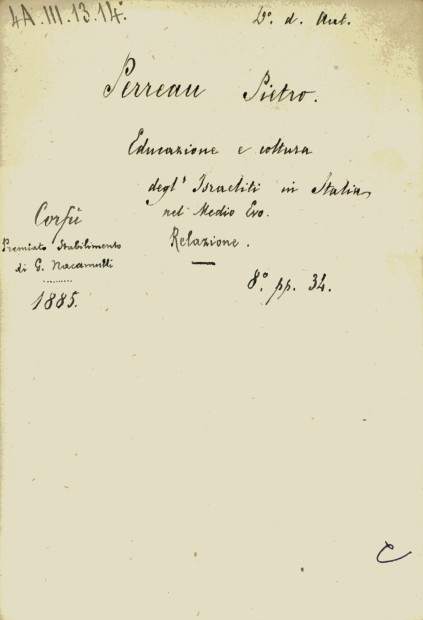 4A.III.13.14.
D°. d. Aut.
Perreau Pietro.
Educazione e coltura
degl' Israeliti in Italia
nel Medio Evo.
Relazione.
Corfù
Premiato Stabilimento
di G. Nacamulli
1885.
8.° pp. 34.
C